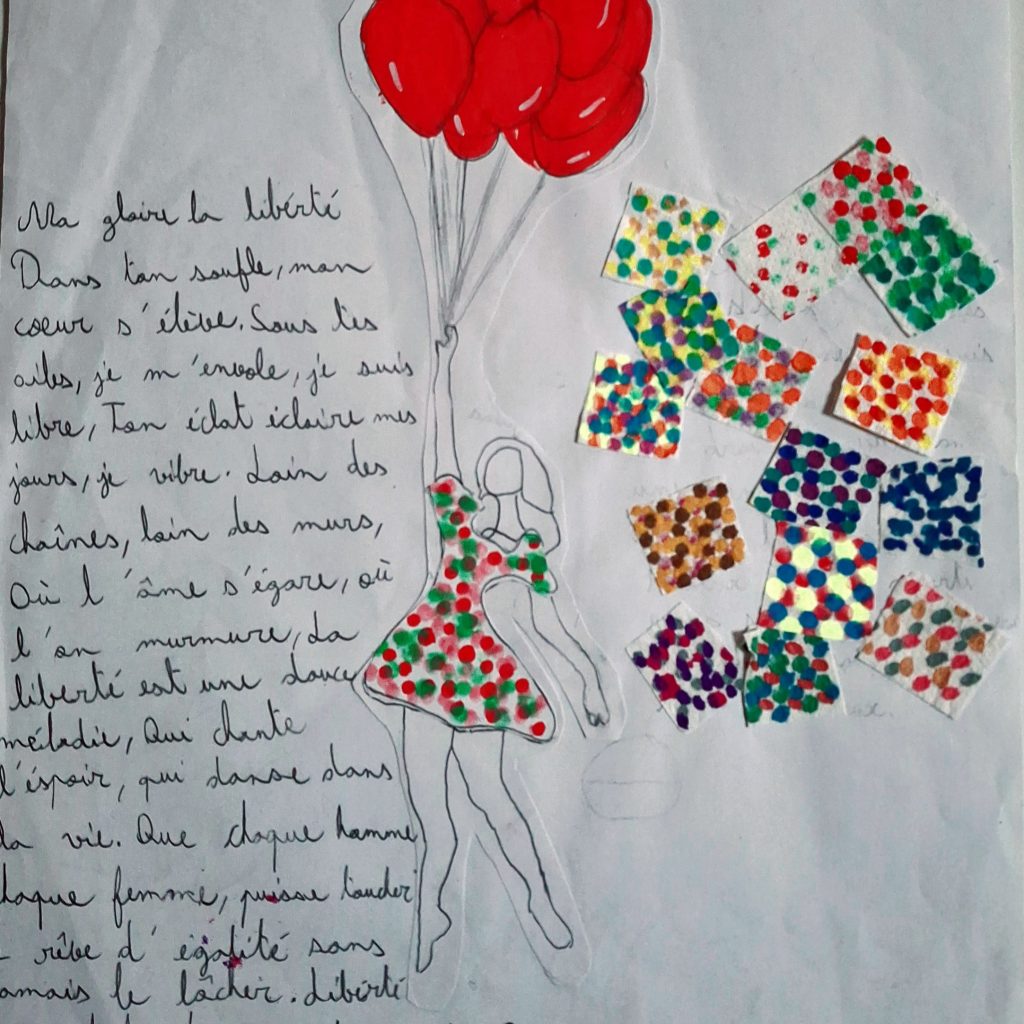 Ma gloire la liberté
Dans ton soufle, mon
coeur s'élève. Sous tes
ailes, je m'envole, je suis
libre, Ton éclat éclaire mes
jours, je vibre. Loin des
chaînes, loin des murs,
Où l'âme s'égare, où
l'on murmure, La
liberté est une douce
mélodie, Qui chante
l'éspoir, qui danse dans
la vie. Que chaque homme
haque femme, puisse
rêve d'égalité sans
amais le lâcher. Liberté